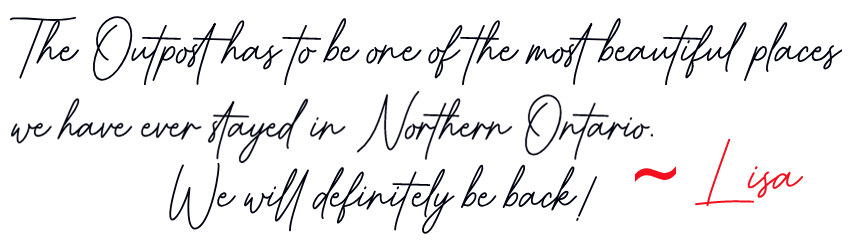 The Outpost has to be one of the most beautiful places
we have ever stayed in Northern Ontario.
We will definitely be back!
~ Lisa